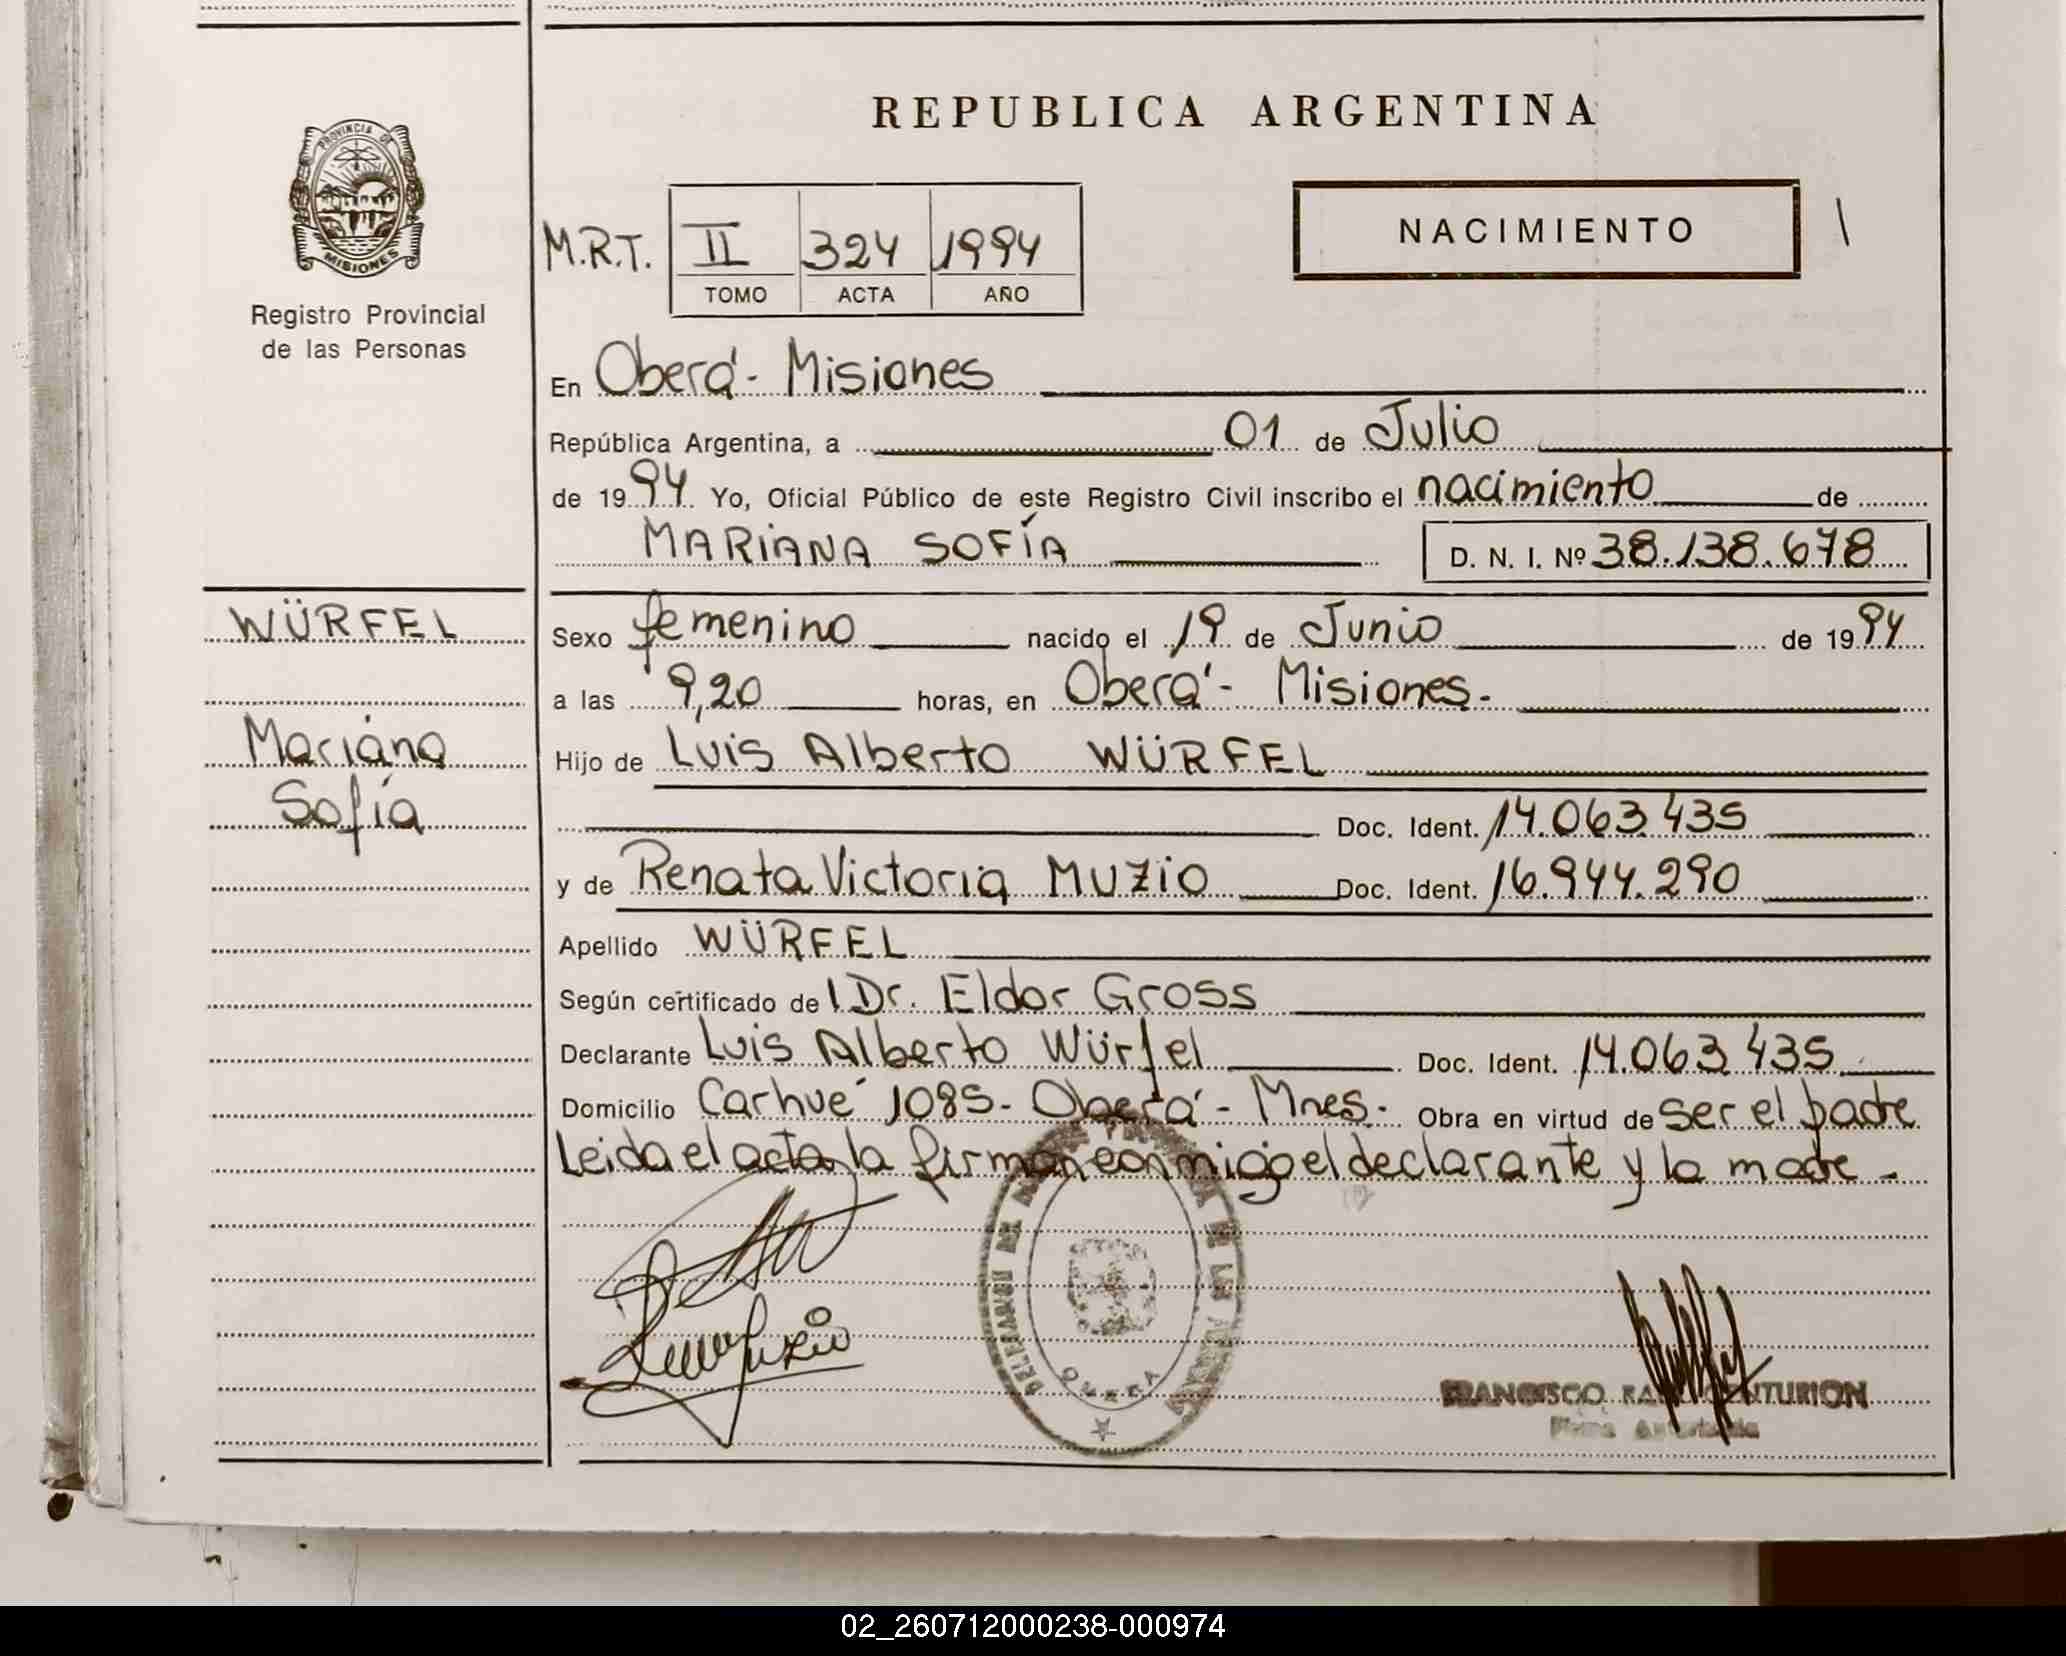 REPUBLICA ARGENTINA
PROVINCIA DE
MISIONES
Registro Provincial
de las Personas
NACIMIENTO
M.R.T. II 324 1994
TOMO ACTA AÑO
En Oberá - Misiones
República Argentina, a 01 de Julio
de 1994 Yo, Oficial Público de este Registro Civil inscribo el nacimiento de
MARIANA SOFÍA D. N. I. Nº 38.138.678
WÜRFEL
Mariana
Sofía
Sexo femenino nacido el 19 de Junio de 1994
a las 9,20 horas, en Oberá - Misiones.
Hijo de Luis Alberto WÜRFEL
Doc. Ident. 14.063.435
y de Renata Victoria MUZIO Doc. Ident. 16.944.290
Apellido WÜRFEL
Según certificado de l Dr. Eldor Gross
Declarante Luis Alberto Würfel Doc. Ident. 14.063.435
Domicilio Carhué 1085 - Oberá - Mnes. Obra en virtud de ser el padre
Leida el acta la firman conmigo el declarante y la madre -
FRANCISCO CENTURION
Firma Autorizada
02_260712000238-000974